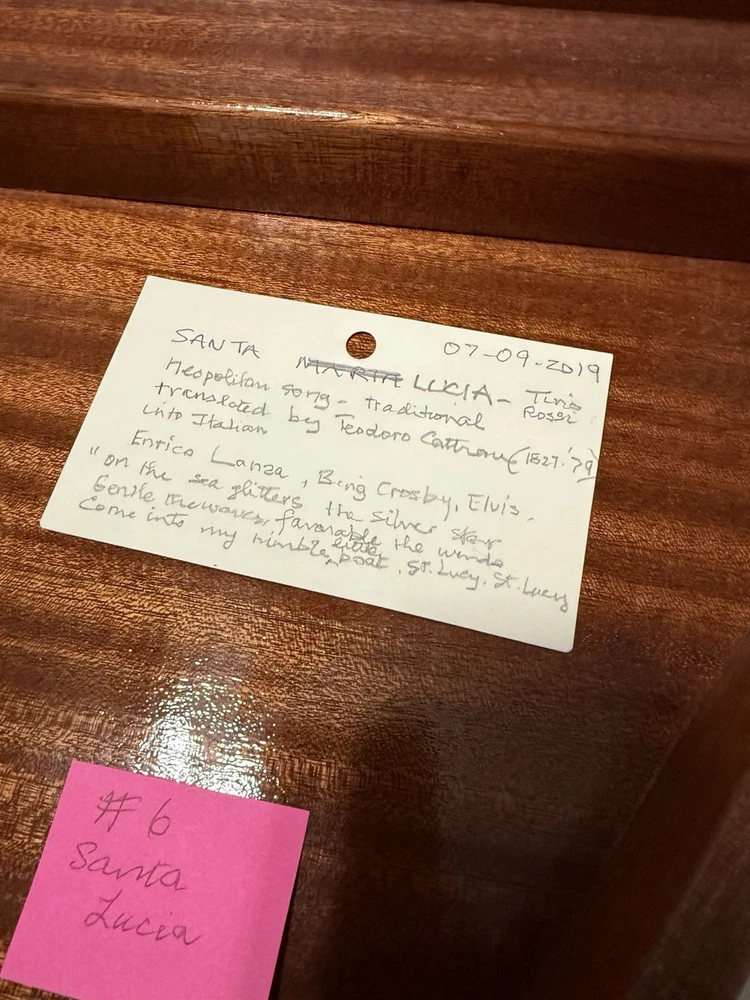 SANTA MARIA LUCIA - Tino 07-09-2019
Rossi
Neopolitan song - traditional
translated by Teodoro Cottrau (1827-'79)
into Italian
Enrico Lanza, Bing Crosby, Elvis.
"on the sea glitters the silver star
Gentle the waves, favorable the winds
Come into my nimble little boat, St. Lucy, St. Lucy
#6
Santa
Lucia